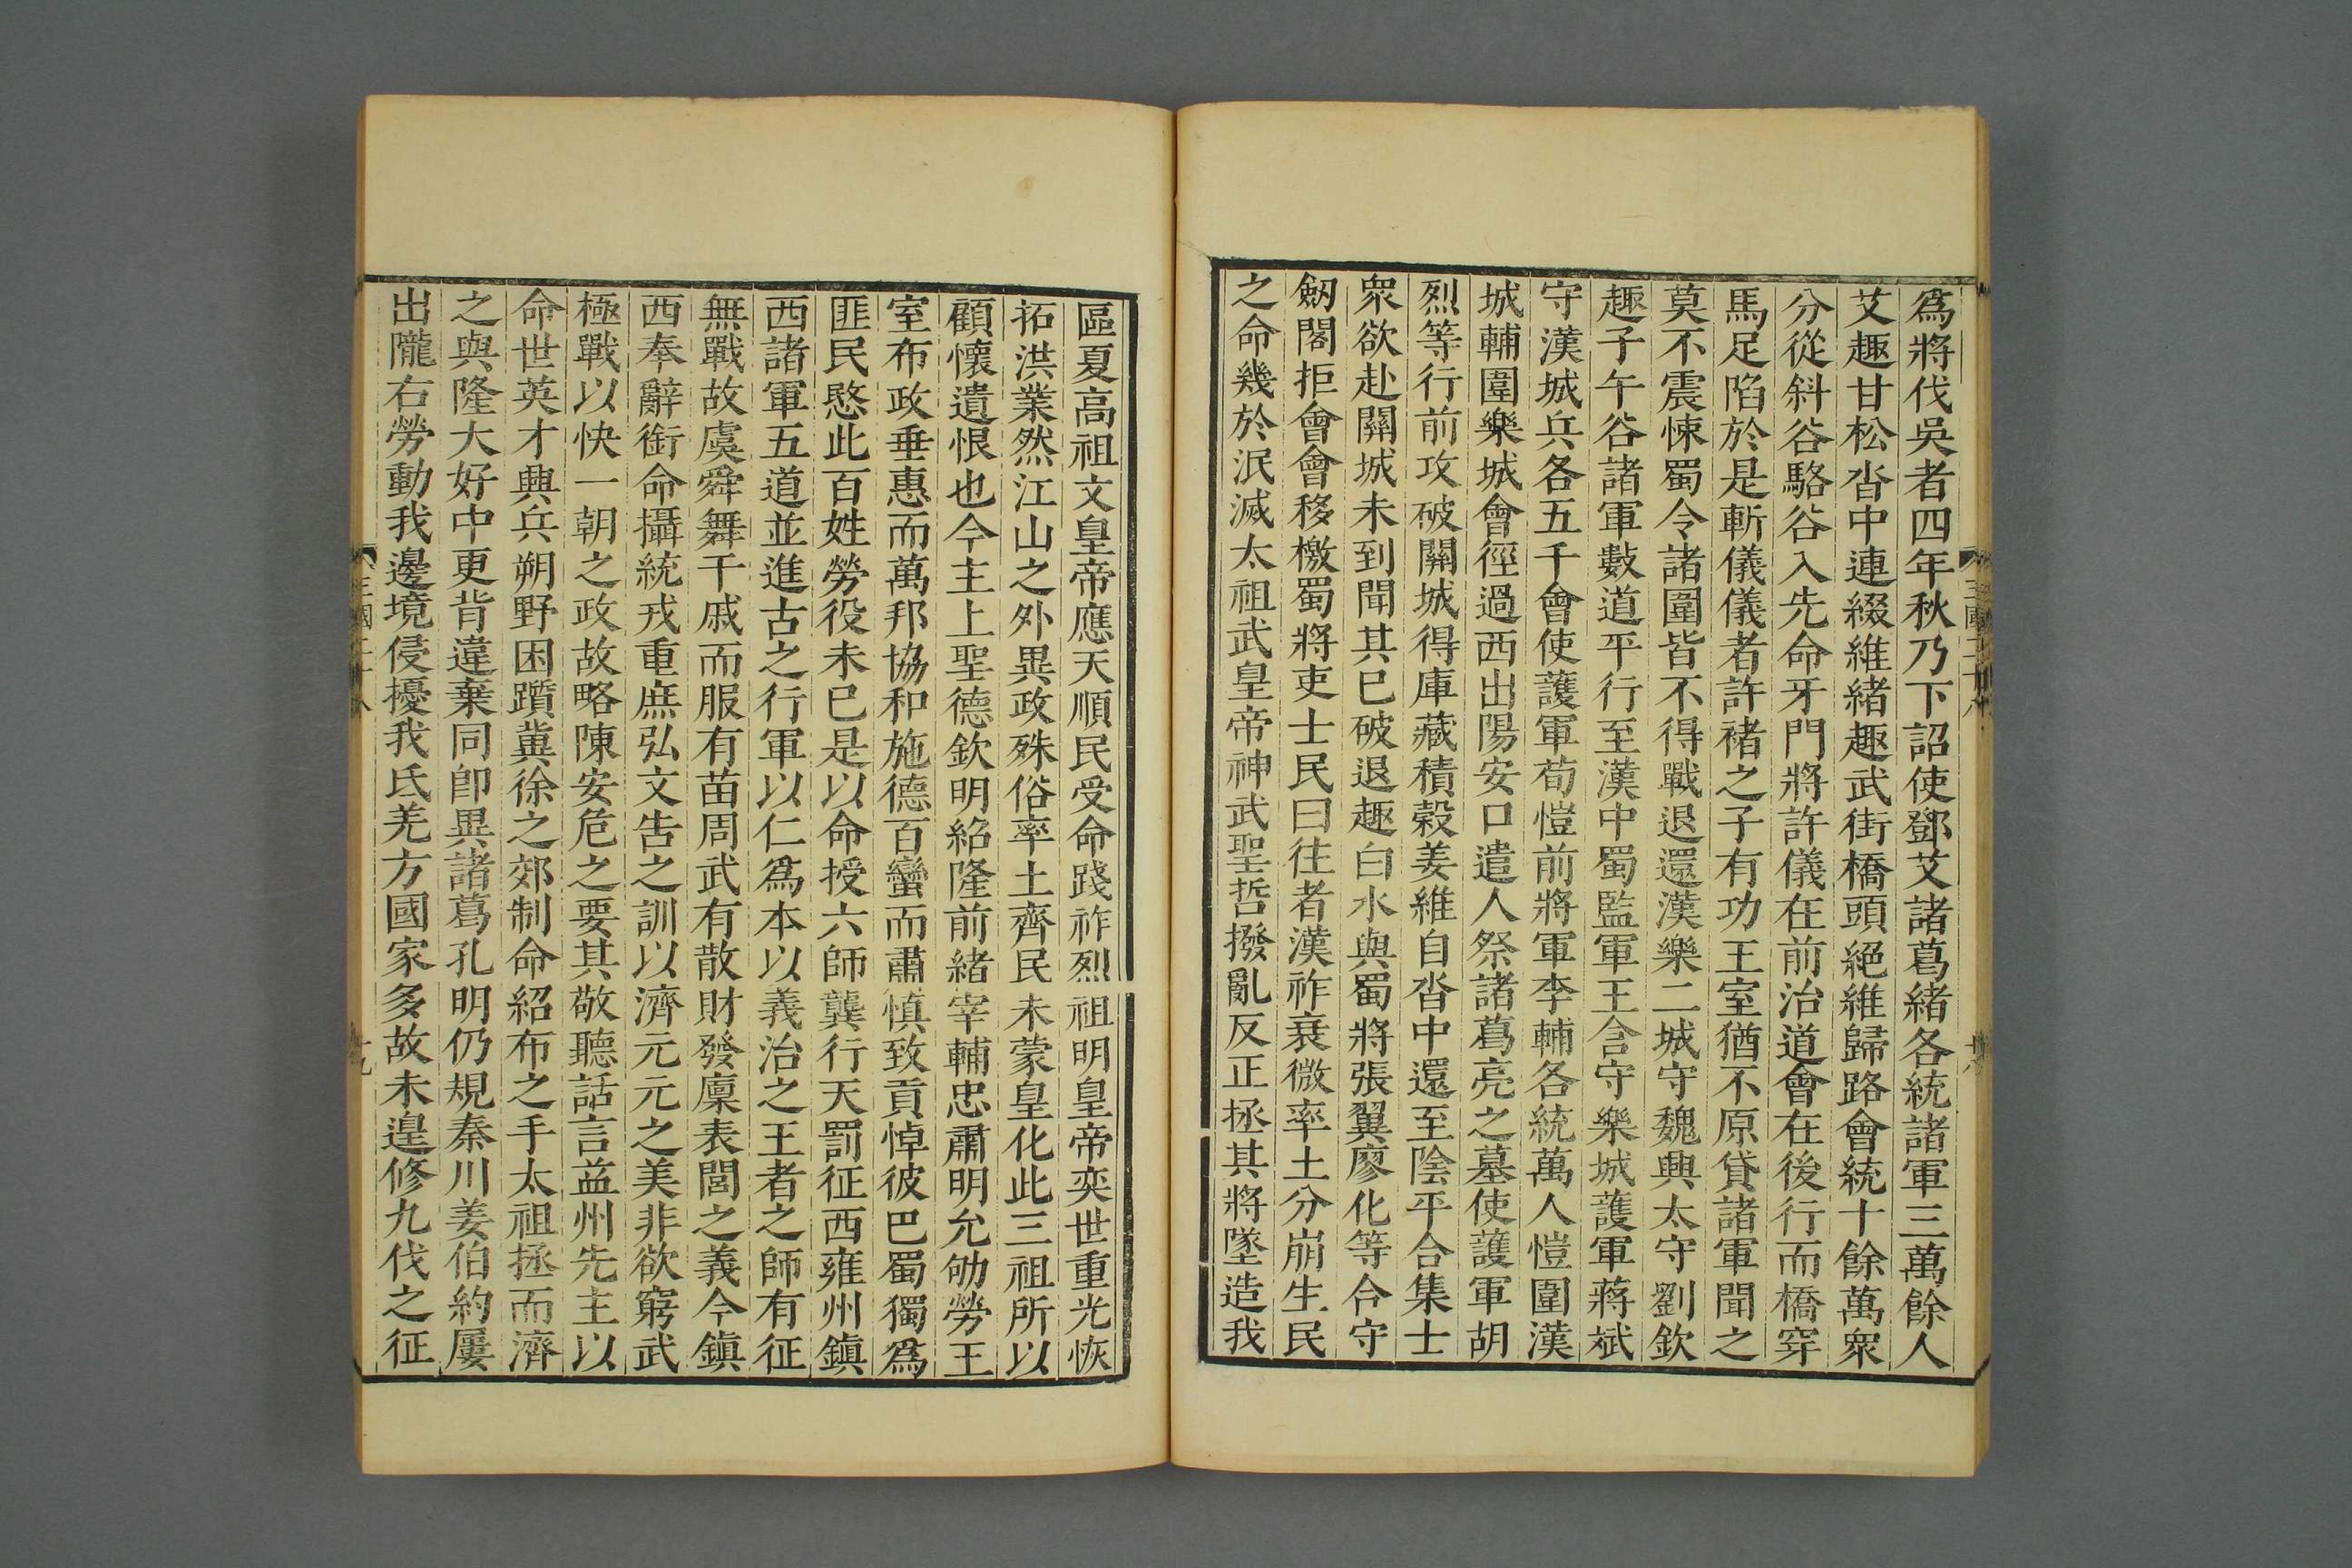 爲將伐吳者四年秋乃下詔使鄧艾諸葛緒各統諸軍三萬餘人
艾趣甘松沓中連綴維緒趣武街橋頭絕維歸路會統十餘萬衆
分從斜谷駱谷入先命牙門將許儀在前治道會在後行而橋穿
馬足陷於是斬儀儀者許褚之子有功王室猶不原貸諸軍聞之
莫不震悚蜀令諸圍皆不得戰退還漢樂二城守魏興太守劉欽
趣子午谷諸軍數道平行至漢中蜀監軍王含守樂城護軍蔣斌
守漢城兵各五千會使護軍荀愷前將軍李輔各統萬人愷圍漢
城輔圍樂城會徑過西出陽安口遣人祭諸葛亮之墓使護軍胡
烈等行前攻破關城得庫藏積穀姜維自沓中還至陰平合集士
衆欲赴關城未到聞其已破退趣白水與蜀將張翼廖化等合守
劒閣拒會會移檄蜀將吏士民曰往者漢祚衰微率土分崩生民
之命幾於泯滅太祖武皇帝神武聖哲撥亂反正拯其將墜造我
區夏高祖文皇帝應天順民受命踐祚烈祖明皇帝奕世重光恢
拓洪業然江山之外異政殊俗率土齊民未蒙皇化此三祖所以
顧懷遺恨也今主上聖德欽明紹隆前緒宰輔忠肅明允劬勞王
室布政垂惠而萬邦協和施德百蠻而肅慎致貢悼彼巴蜀獨爲
匪民愍此百姓勞役未已是以命授六師龔行天罰征西雍州鎮
西諸軍五道並進古之行軍以仁爲本以義治之王者之師有征
無戰故虞舜舞干戚而服有苗周武有散財發廩表閭之義今鎮
西奉辭銜命攝統戎重庶弘文告之訓以濟元元之美非欲窮武
極戰以快一朝之政故略陳安危之要其敬聽話言益州先主以
命世英才興兵朔野困躓冀徐之郊制命紹布之手太祖拯而濟
之與隆大好中更背違棄同卽異諸葛孔明仍規秦川姜伯約屢
出隴右勞動我邊境侵擾我氐羌方國家多故未遑修九伐之征